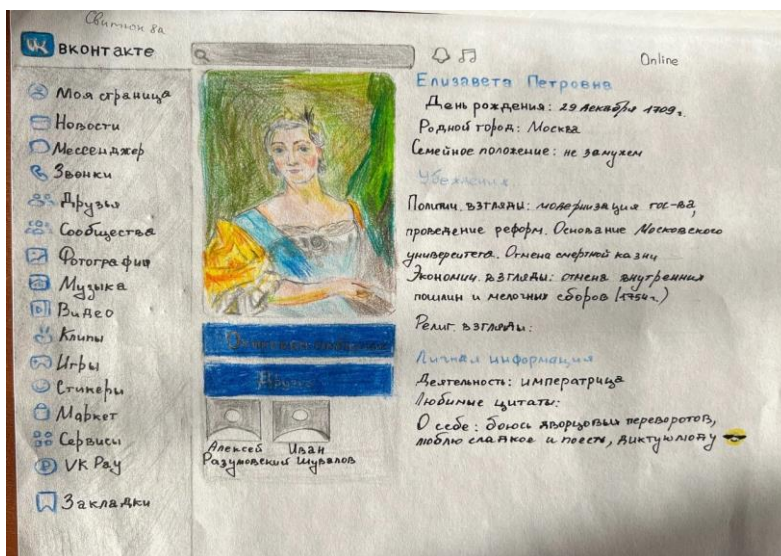 8а
VK вконтакте
Online
Моя страница
Новости
Мессенджер
Звонки
Друзья
Сообщества
Фотографии
Музыка
Видео
Клипы
Игры
Стикеры
Маркет
Сервисы
VK Pay
Закладки
Друзья
Алексей Разумовский
Иван Шувалов
Елизавета Петровна
День рождения: 29 декабря 1709г.
Родной город: Москва
Семейное положение: не замужем
Убеждения
Политич. взгляды: модернизация гос-ва,
проведение реформ. Основание Московского
университета. Отмена смертной казни
Экономич. взгляды: отмена внутренних
пошлин и мелочных сборов (1754г.)
Религ. взгляды:
Личная информация
Деятельность: императрица
Любимые цитаты:
О себе: боюсь дворцовых переворотов,
люблю сладкое и поесть, диктую моду